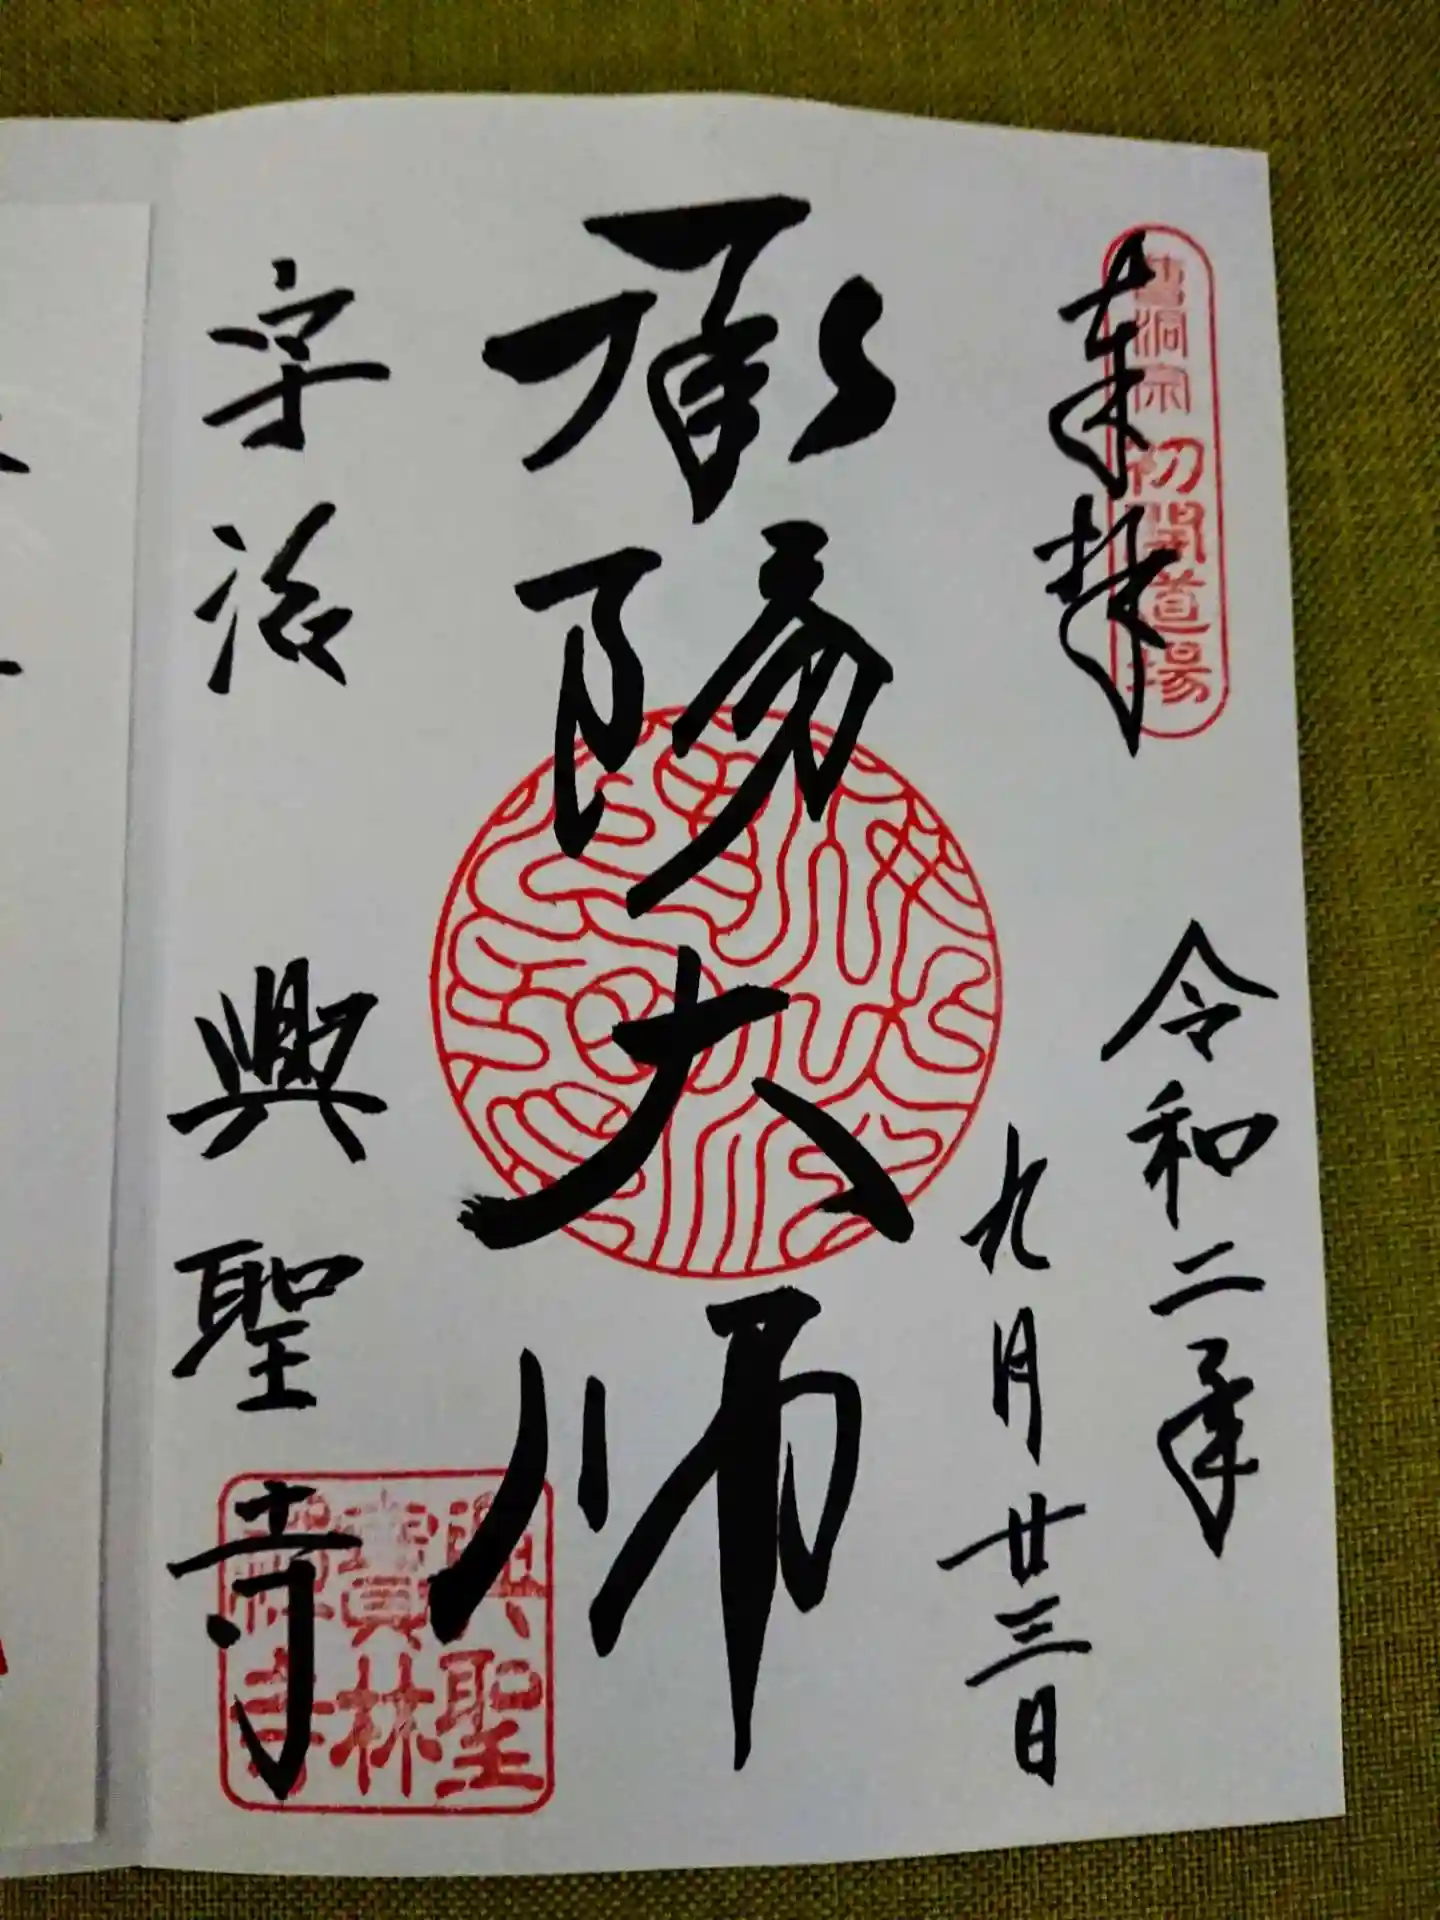 奉拝
曹洞宗 初開道場
令和二年
九月廿三日
承陽大師
宇治 興聖寺
興聖
寶林
禅寺